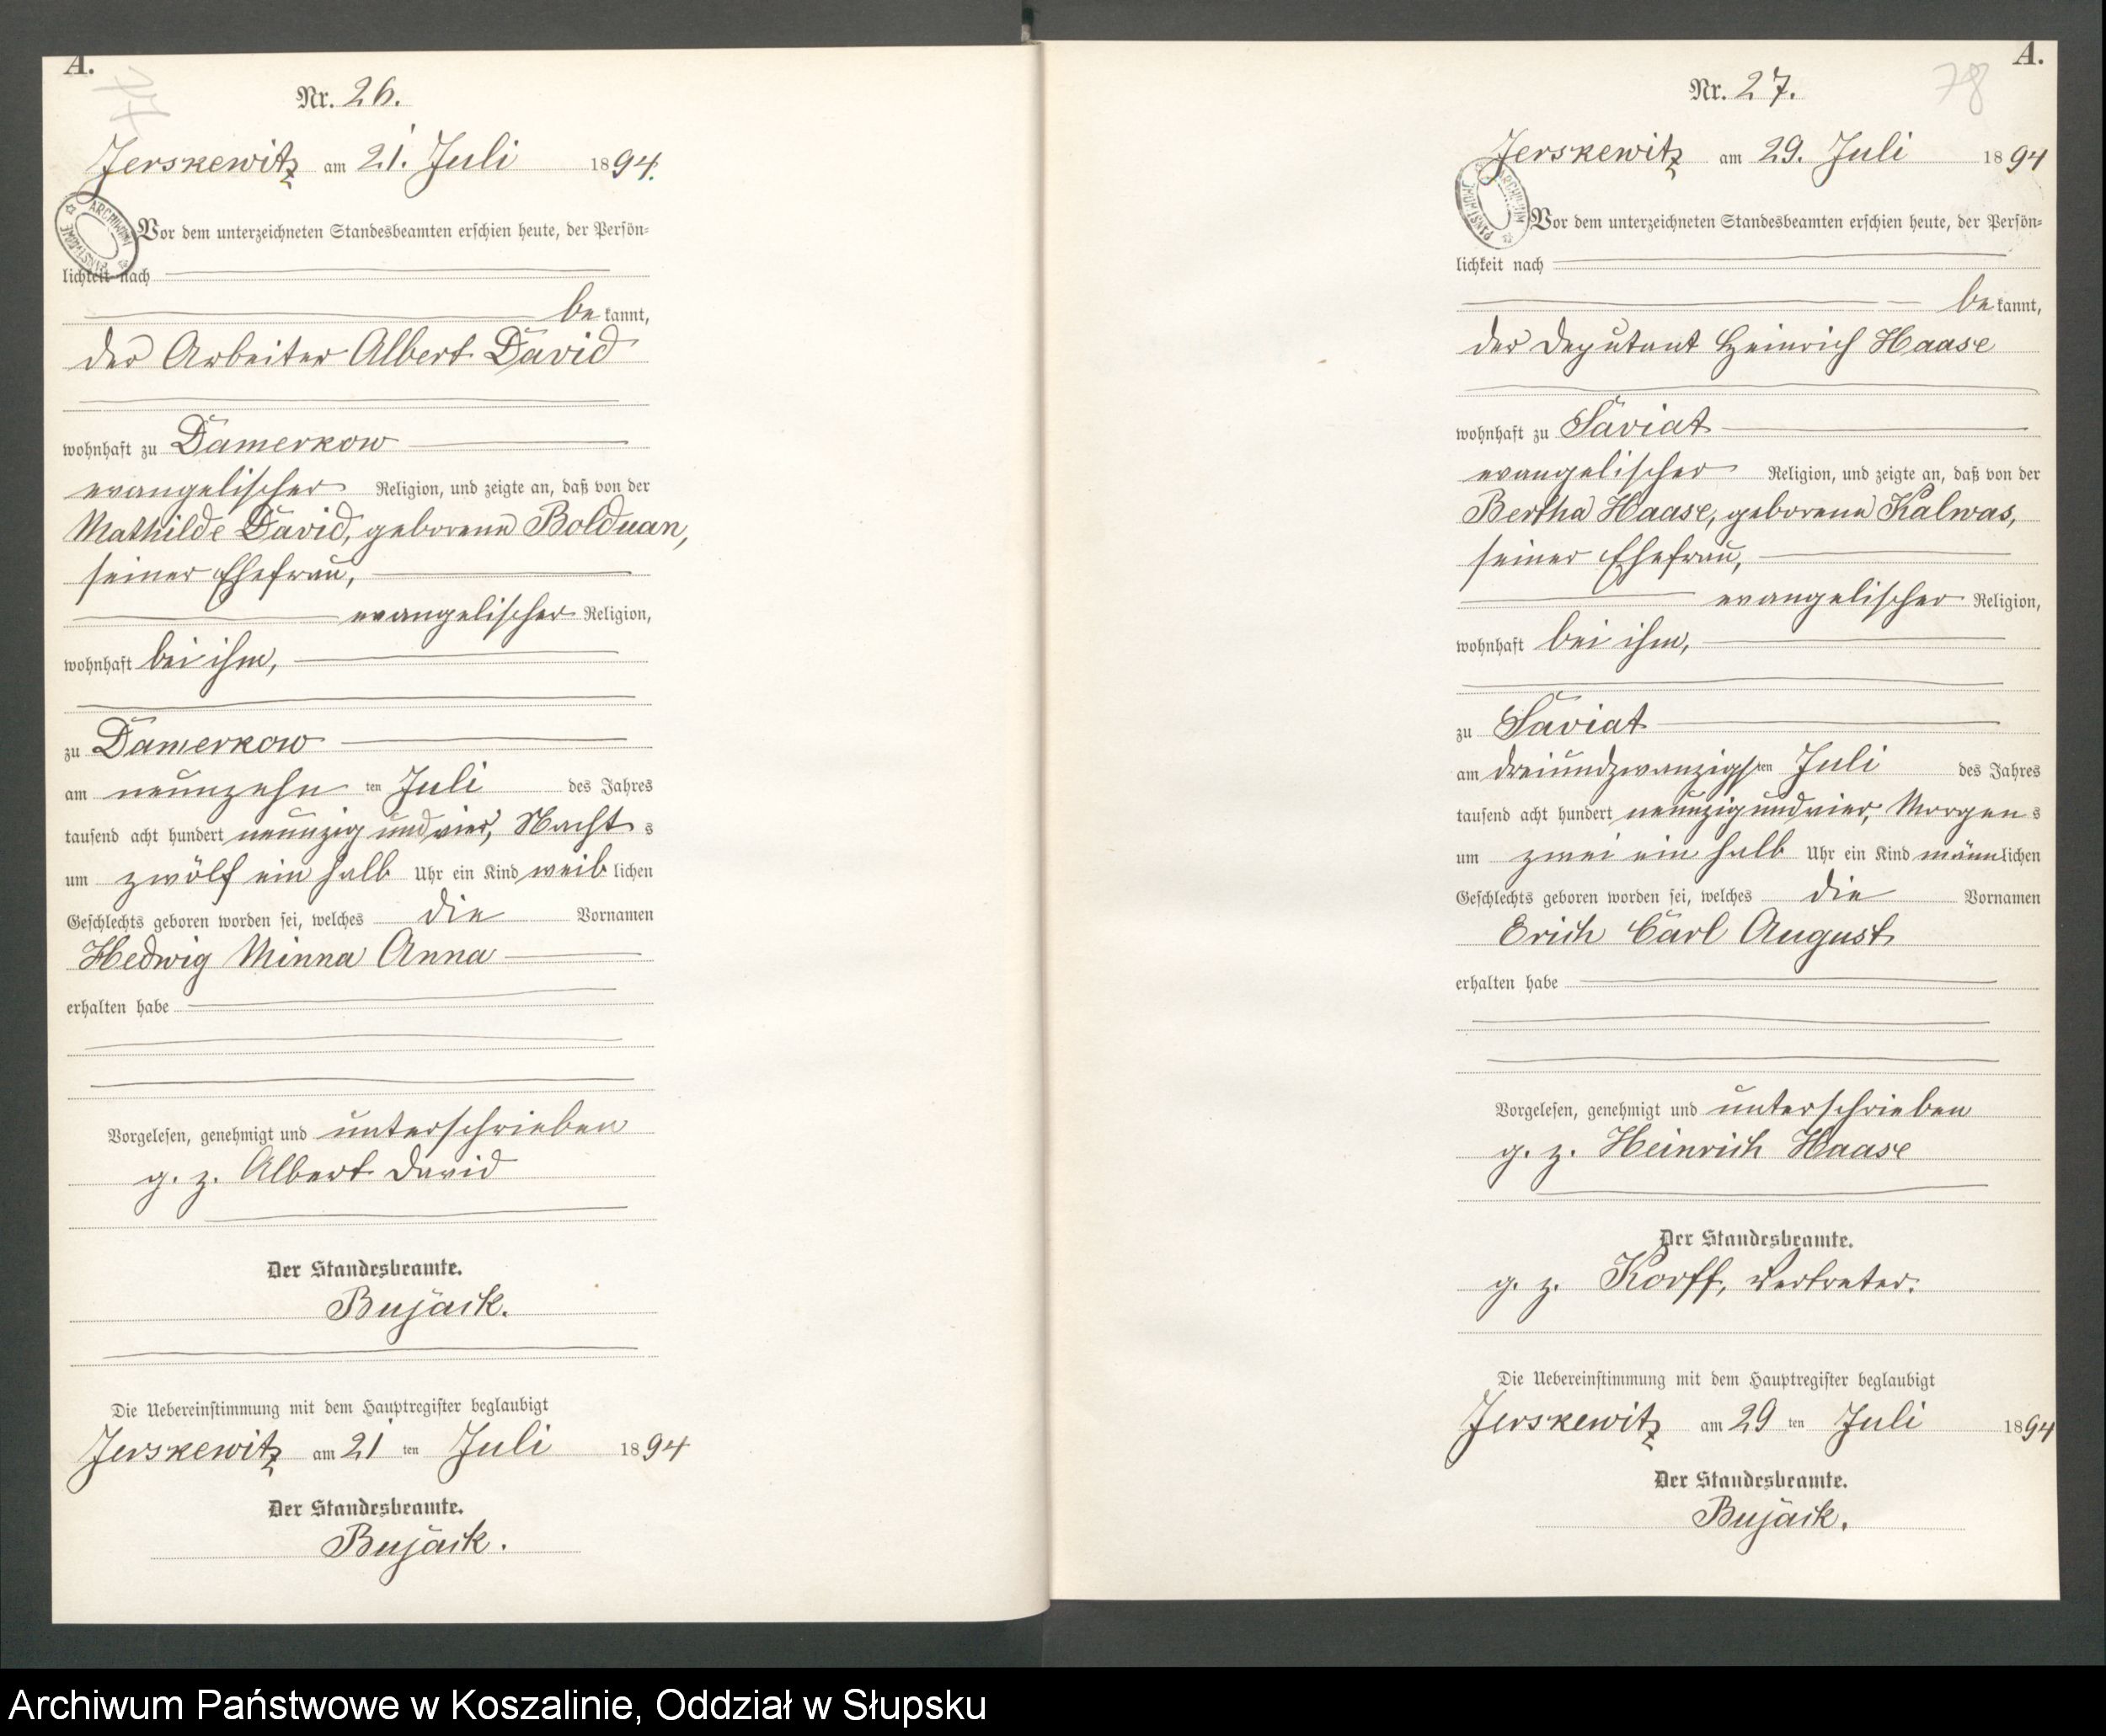 A.
77
Nr. 26.
Jerskewitz am 21. Juli 1894.
Vor dem unterzeichneten Standesbeamten erschien heute, der Persön-
lichkeit nach
bekannt,
der Arbeiter Albert David
wohnhaft zu Damerkow
evangelischer Religion, und zeigte an, daß von der
Mathilde David, geborene Bolduan,
seiner Ehefrau,
evangelischer Religion,
wohnhaft bei ihm,
zu Damerkow
am neunzehn ten Juli des Jahres
tausend acht hundert neunzig und vier, Nachts
um zwölf ein halb Uhr ein Kind weiblichen
Geschlechts geboren worden sei, welches die Vornamen
Hedwig Minna Anna
erhalten habe
Vorgelesen, genehmigt und unterschrieben
g. z. Albert David
Der Standesbeamte.
Bujack.
Die Uebereinstimmung mit dem Hauptregister beglaubigt
Jerskewitz am 21 ten Juli 1894
Der Standesbeamte.
Bujack.
A.
78
Nr. 27.
Jerskewitz am 29. Juli 1894
Vor dem unterzeichneten Standesbeamten erschien heute, der Persön-
lichkeit nach
bekannt,
der Deputant Heinrich Haase
wohnhaft zu Saviat
evangelischer Religion, und zeigte an, daß von der
Bertha Haase, geborene Kalwas,
seiner Ehefrau,
evangelischer Religion,
wohnhaft bei ihm,
zu Saviat
am dreiundzwanzigsten Juli des Jahres
tausend acht hundert neunzig und vier, Morgens
um zwei ein halb Uhr ein Kind männlichen
Geschlechts geboren worden sei, welches die Vornamen
Erich Carl August
erhalten habe
Vorgelesen, genehmigt und unterschrieben
g. z. Heinrich Haase
Der Standesbeamte.
g. z. Korff, Vertreter.
Die Uebereinstimmung mit dem Hauptregister beglaubigt
Jerskewitz am 29 ten Juli 1894
Der Standesbeamte.
Bujack.
Archiwum Państwowe w Koszalinie, Oddział w Słupsku